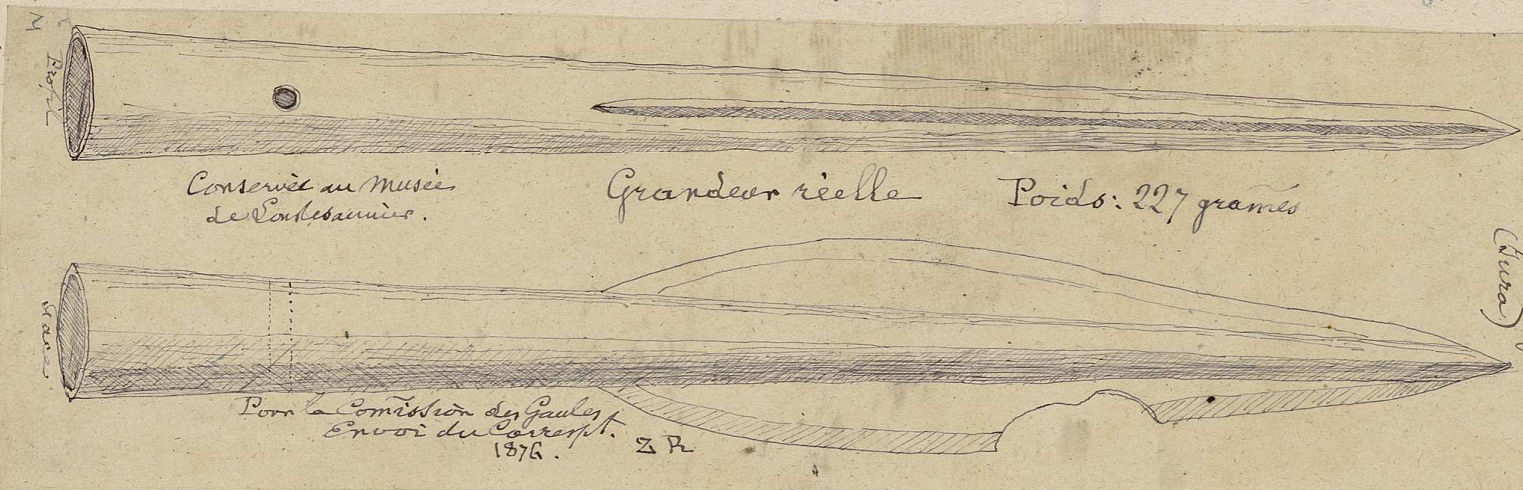 Profil
Conservée au Musée
de Lonslesaunier.
Grandeur réelle
Poids: 227 gram̃es
(Jura)
Pour la Com̃ission des Gaules
Envoi du Correspt.
1876.
Z R